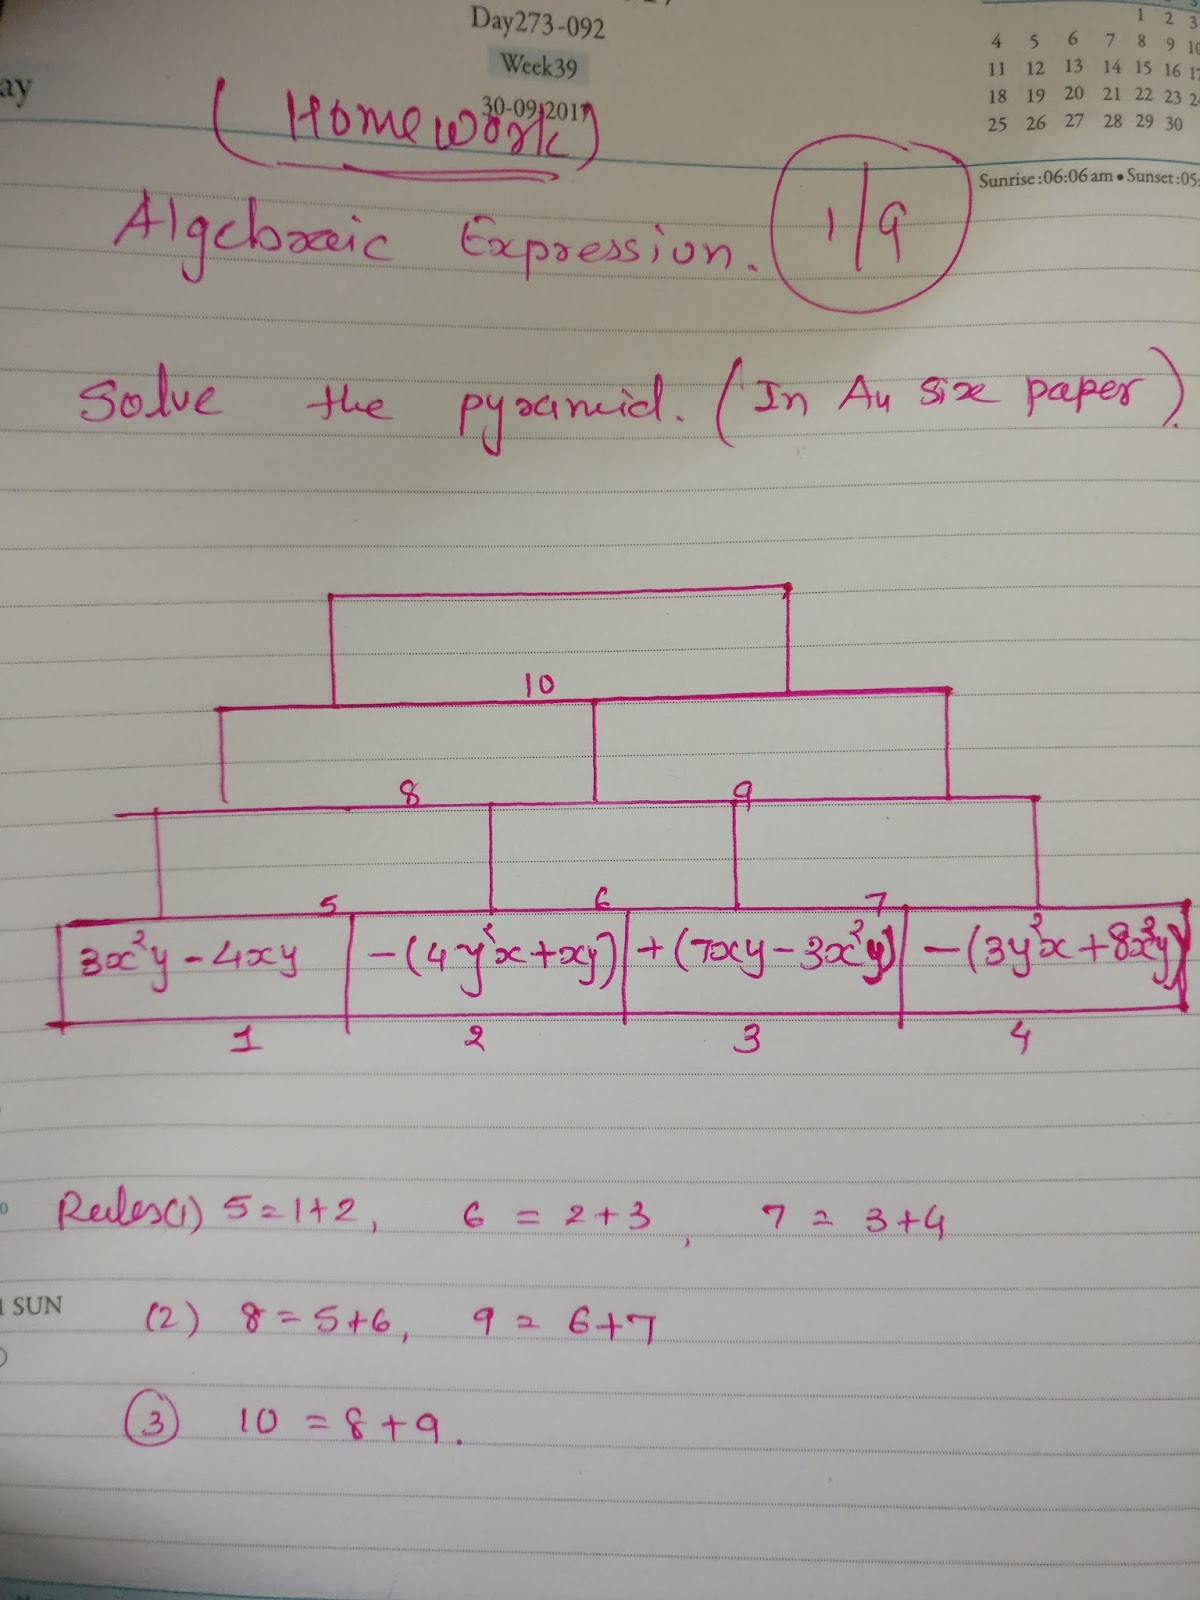 Day273-092
Week39
30-09-2017
1 2 3
4 5 6 7 8 9 10
11 12 13 14 15 16 17
18 19 20 21 22 23 24
25 26 27 28 29 30
Sunrise:06:06 am • Sunset:05:
ay
(Homework)
Algebraic Expression.
1/9
Solve the pyramid. (In A4 size paper).
10
8 9
5 6 7
3x²y - 4xy -(4y²x+xy) +(7xy-3x²y) -(3y²x+8x²y)
1 2 3 4
Rules(1) 5=1+2, 6 = 2+3, 7 = 3+4
SUN
(2) 8=5+6, 9 = 6+7
3 10 = 8+9.